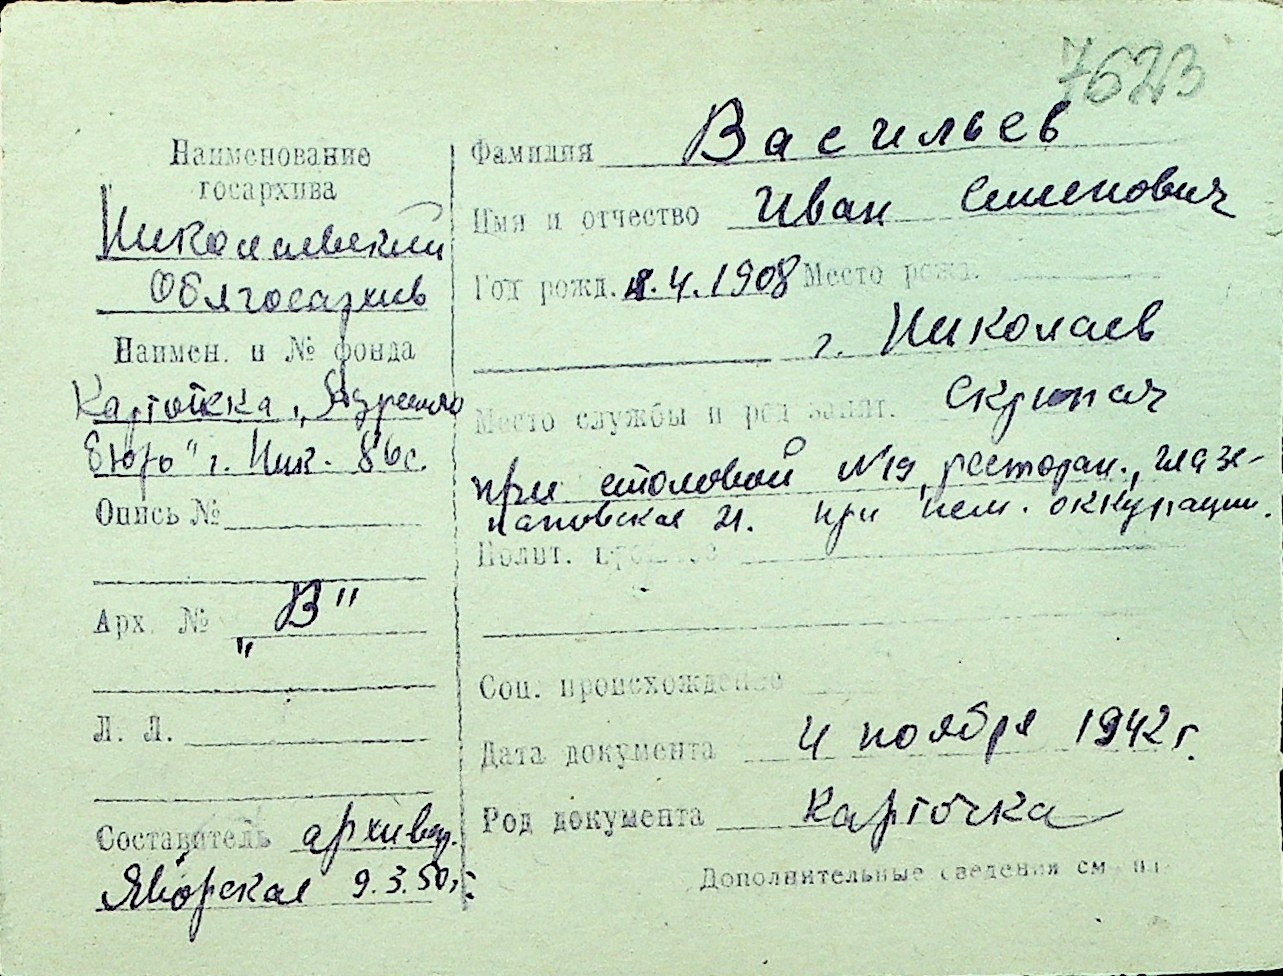 7623
Наименование
госархива
Николаевский
Облгосархив
Наимен. и № фонда
Картотека „Адресно
бюро" г. Ник. 86с.
Опись №
Арх. № „В"
Л. Л.
Составитель архивар.
Яворская 9.3.50 г.
Фамилия Васильев
Имя и отчество Иван Семенович
Год рожд. 4.1908 Место рожд.
г. Николаев
Место службы и род занят. Скрипач
при столовой №19, ресторан., Глазе-
наповская 21. при нем. оккупации.
Полит. прошлое
Соц. происхождение
Дата документа 4 ноября 1942 г.
Род документа Карточка
Дополнительные сведения см. на